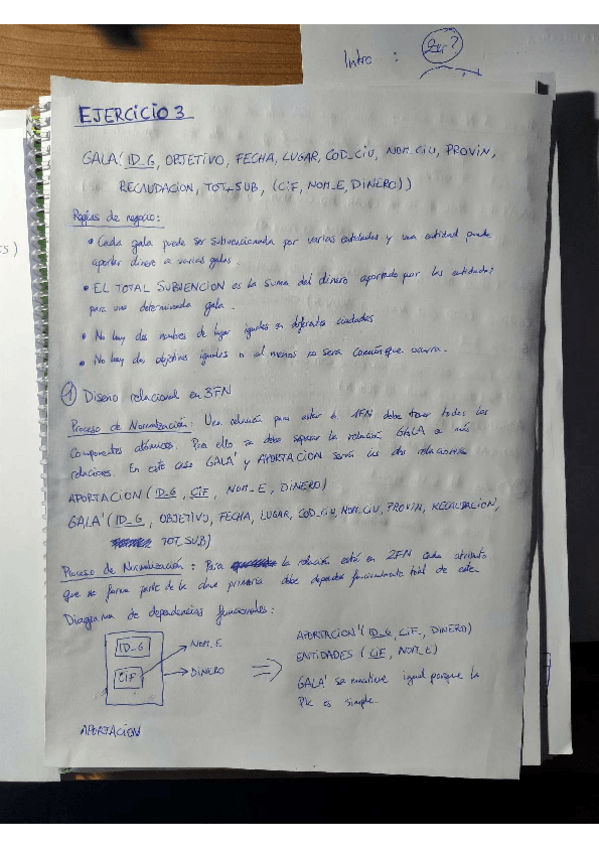 Intro : Ser?
s)
EJERCICIO 3
GALA (ID_G, OBJETIVO, FECHA, LUGAR, COD_CIU, NOM_CIU, PROVIN,
RECAUDACION, TOT_SUB, (CIF, NOM_E, DINERO))
Reglas de negocio:
• Cada gala puede ser subvencionada por varias entidades y una entidad puede
aportar dinero a varias galas.
• EL TOTAL SUBVENCION es la suma del dinero aportado por las entidades
para una determinada gala.
• No hay dos nombres de lugar iguales en diferentes ciudades
• No hay dos objetivos iguales o al menos no sera común que ocurra.
1 Diseño relacional en 3FN
Proceso de Normalización: Una relación para estar en 1FN debe tener todos los
componentes atómicos. Para ello se debe separar la relación GALA a más
relaciones. En este caso GALA' y APORTACION serán las dos relaciones
APORTACION (ID_G, CIF, NOM_E, DINERO)
GALA' (ID_G, OBJETIVO, FECHA, LUGAR, COD_CIU, NOM_CIU, PROVIN, RECAUDACION,
TOT_SUB)
Proceso de Normalización: Para la relación está en 2FN cada atributo
que no forma parte de la clave primaria debe depender funcionalmente total de esta.
Diagrama de dependencias funcionales:
ID_G
NOM_E
CIF
DINERO
APORTACION
APORTACION' (ID_G, CIF, DINERO)
ENTIDADES (CIF, NOM_E)
GALA' se mantiene igual porque la
PK es simple.